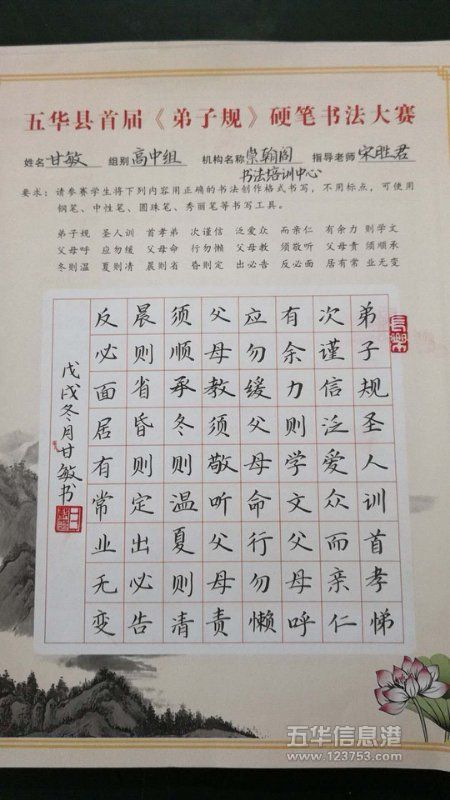 五华县首届《弟子规》硬笔书法大赛
姓名 甘敏 组别 高中组 机构名称 崇翰阁书法培训中心 指导老师 宋胜君
要求：请参赛学生将下列内容用正确的书法创作格式书写，不用标点，可使用
钢笔、中性笔、圆珠笔、秀丽笔等书写工具。
弟子规 圣人训 首孝弟 次谨信 泛爱众 而亲仁 有余力 则学文
父母呼 应勿缓 父母命 行勿懒 父母教 须敬听 父母责 须顺承
冬则温 夏则清 晨则省 昏则定 出必告 反必面 居有常 业无变
弟子规圣人训首孝悌
次谨信泛爱众而亲仁
有余力则学文父母呼
应勿缓父母命行勿懒
父母教须敬听父母责
须顺承冬则温夏则清
晨则省昏则定出必告
反必面居有常业无变
戊戌冬月甘敏书
五华信息港
www.123753.com